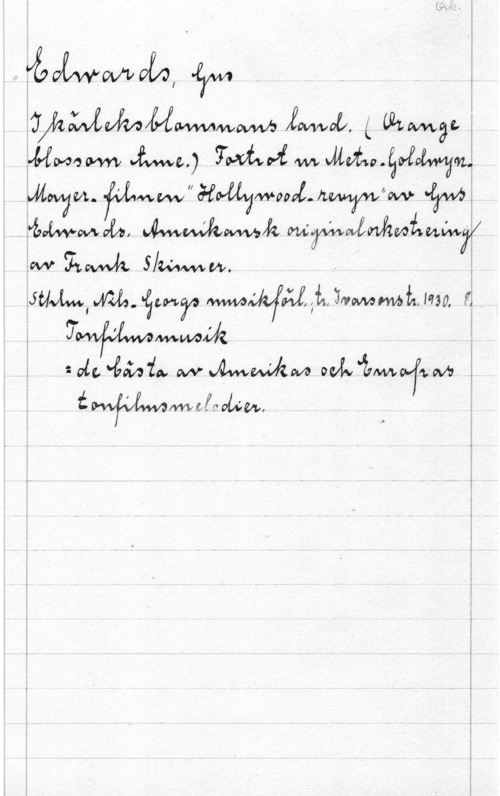 Ork.
Edwards, Gus
I kärleksblommans land. (Orange
blossom time.) Foxtrot ur Metro-Goldwyn-
Mayer-filmen "Hollywood-revyn" av Gus
Edwards. Amerikansk originalorkestrering
av Frank Skinner.
Sthlm, Nils-Georgs musikförl., tr. Ivarsonstr. 1930. 8.
Tonfilmsmusik
= de bästa av Amerikas och Europas
tonfilmsmelodier.